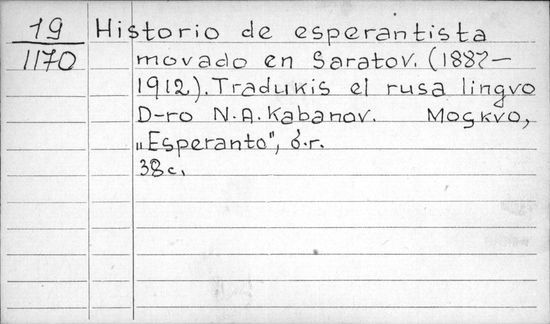 19 Historio de esperantista
1170 movado en Saratov. (1887–
1912). Tradukis el rusa lingvo
D-ro N.A. Kabanov. Moskvo,
„Esperanto", б.г.
38с.